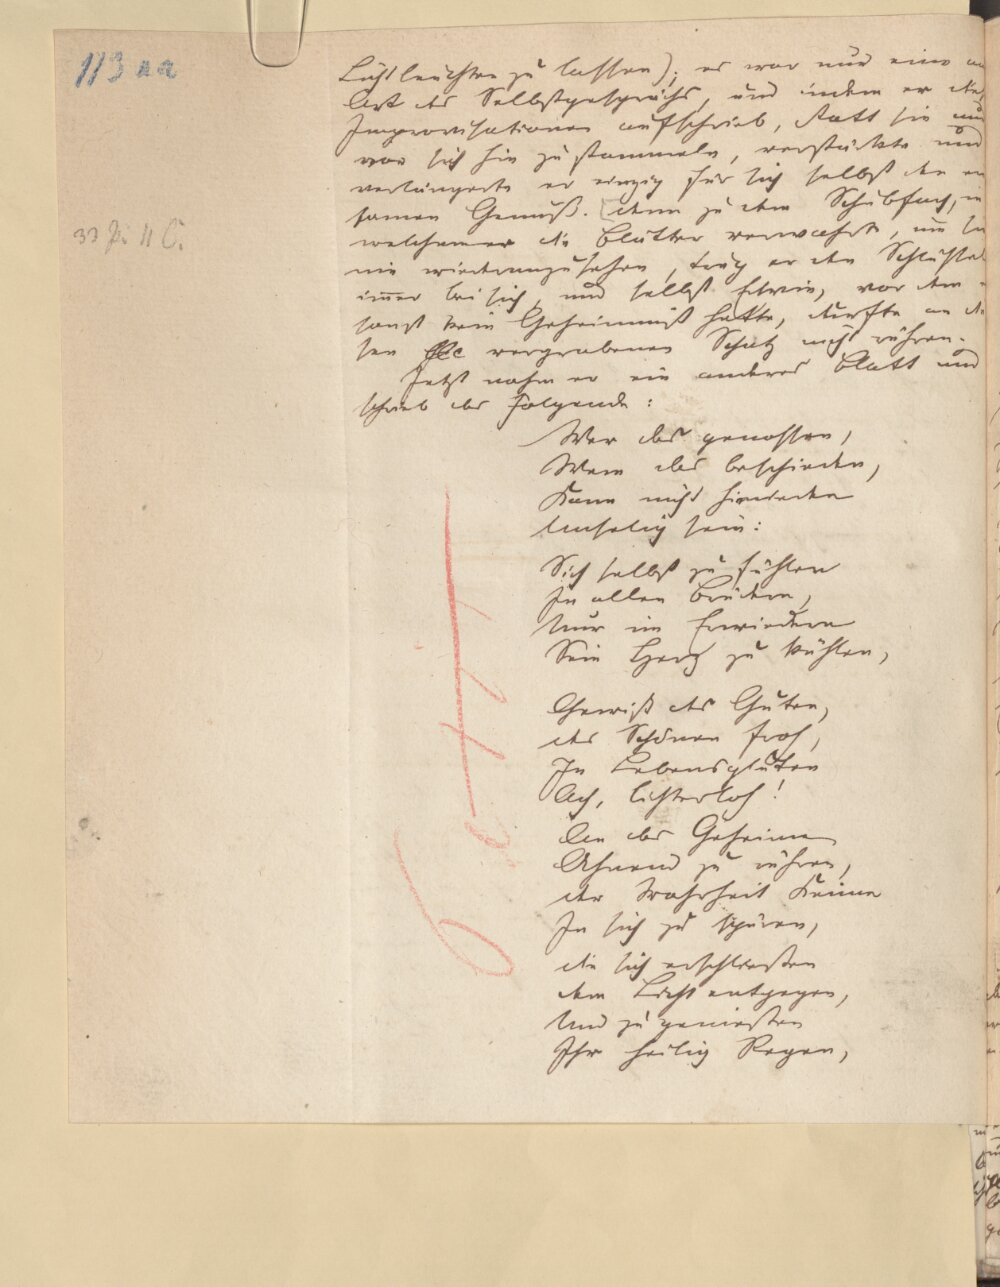 113 aa
Licht leuchten zu lassen); es war nur eine
Art des Selbstgesprächs, und indem er die
Improvisationen aufschrieb, statt sie nur
vor sich hin zu stammeln, verstärkte und
verlängerte er einzig für sich selbst den ein
samen Genuß. denn zu dem Schubfach, in
welchem er die Blätter verwahrte, um sie
nie wiederanzusehen, trug er den Schlüssel
immer bei sich, und selbst Edwin, vor dem
sonst kein Geheimniß hatte, durfte an die
sen vergrabenen Schatz nicht rühren.
Jetzt nahm er ein anderes Blatt und
schrieb das Folgende:
Wer das genossen,
Wem das beschieden,
Kann nicht hinieden
Unselig sein:
Sich selbst zu fühlen
In allen Brüdern,
Nur im Erwiedern
Sein Herz zu kühlen,
Gewiß des Guten,
des Schönen froh,
In Lebensgluten
Ach, lichterloh!
An das Geheime
Ahnend zu rühren,
der Wahrheit Keime
In sich zu spüren,
die sich erschließen
dem Licht entgegen,
Und zu genießen
Ihr heilig Regen,